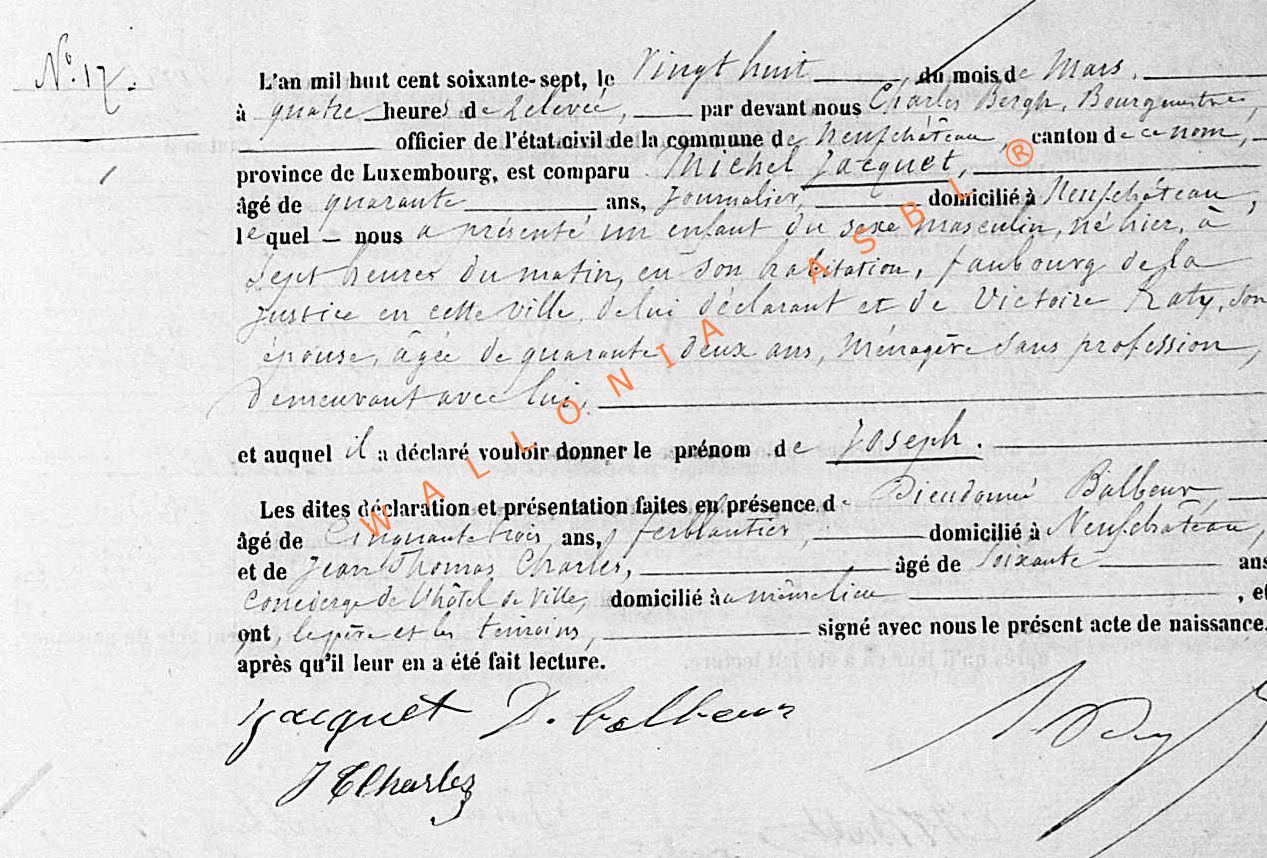 N° 17.
L'an mil huit cent soixante-sept, le Vingt huit, du mois de Mars.
à quatre heures de relevée, par devant nous Charles Bergh, Bourgmestre,
officier de l'état civil de la commune de Neufchâteau, canton de ce nom,
province de Luxembourg, est comparu Michel Jacquet,
âgé de quarante ans, Journalier, domicilié à Neufchâteau,
lequel nous a présenté un enfant du sexe masculin, né hier, à
sept heures du matin, en son habitation, faubourg de la
Justice en cette ville, de lui déclarant et de Victoire Raty, son
épouse, âgée de quarante deux ans, Ménagère sans profession,
Demeurant avec lui,
et auquel il a déclaré vouloir donner le prénom de Joseph.
Les dites déclaration et présentation faites en présence de Dieudonné Balbeur,
âgé de Cinquante trois ans, ferblantier, domicilié à Neufchâteau,
et de Jean Thomas Charles, âgé de Soixante ans
Concierge de l'hôtel de Ville, domicilié au même lieu, et
ont, le père et les témoins, signé avec nous le présent acte de naissance.
après qu'il leur en a été fait lecture.
Jacquet D. Balbeur
J T Charles
WALLONIA ASBL ®